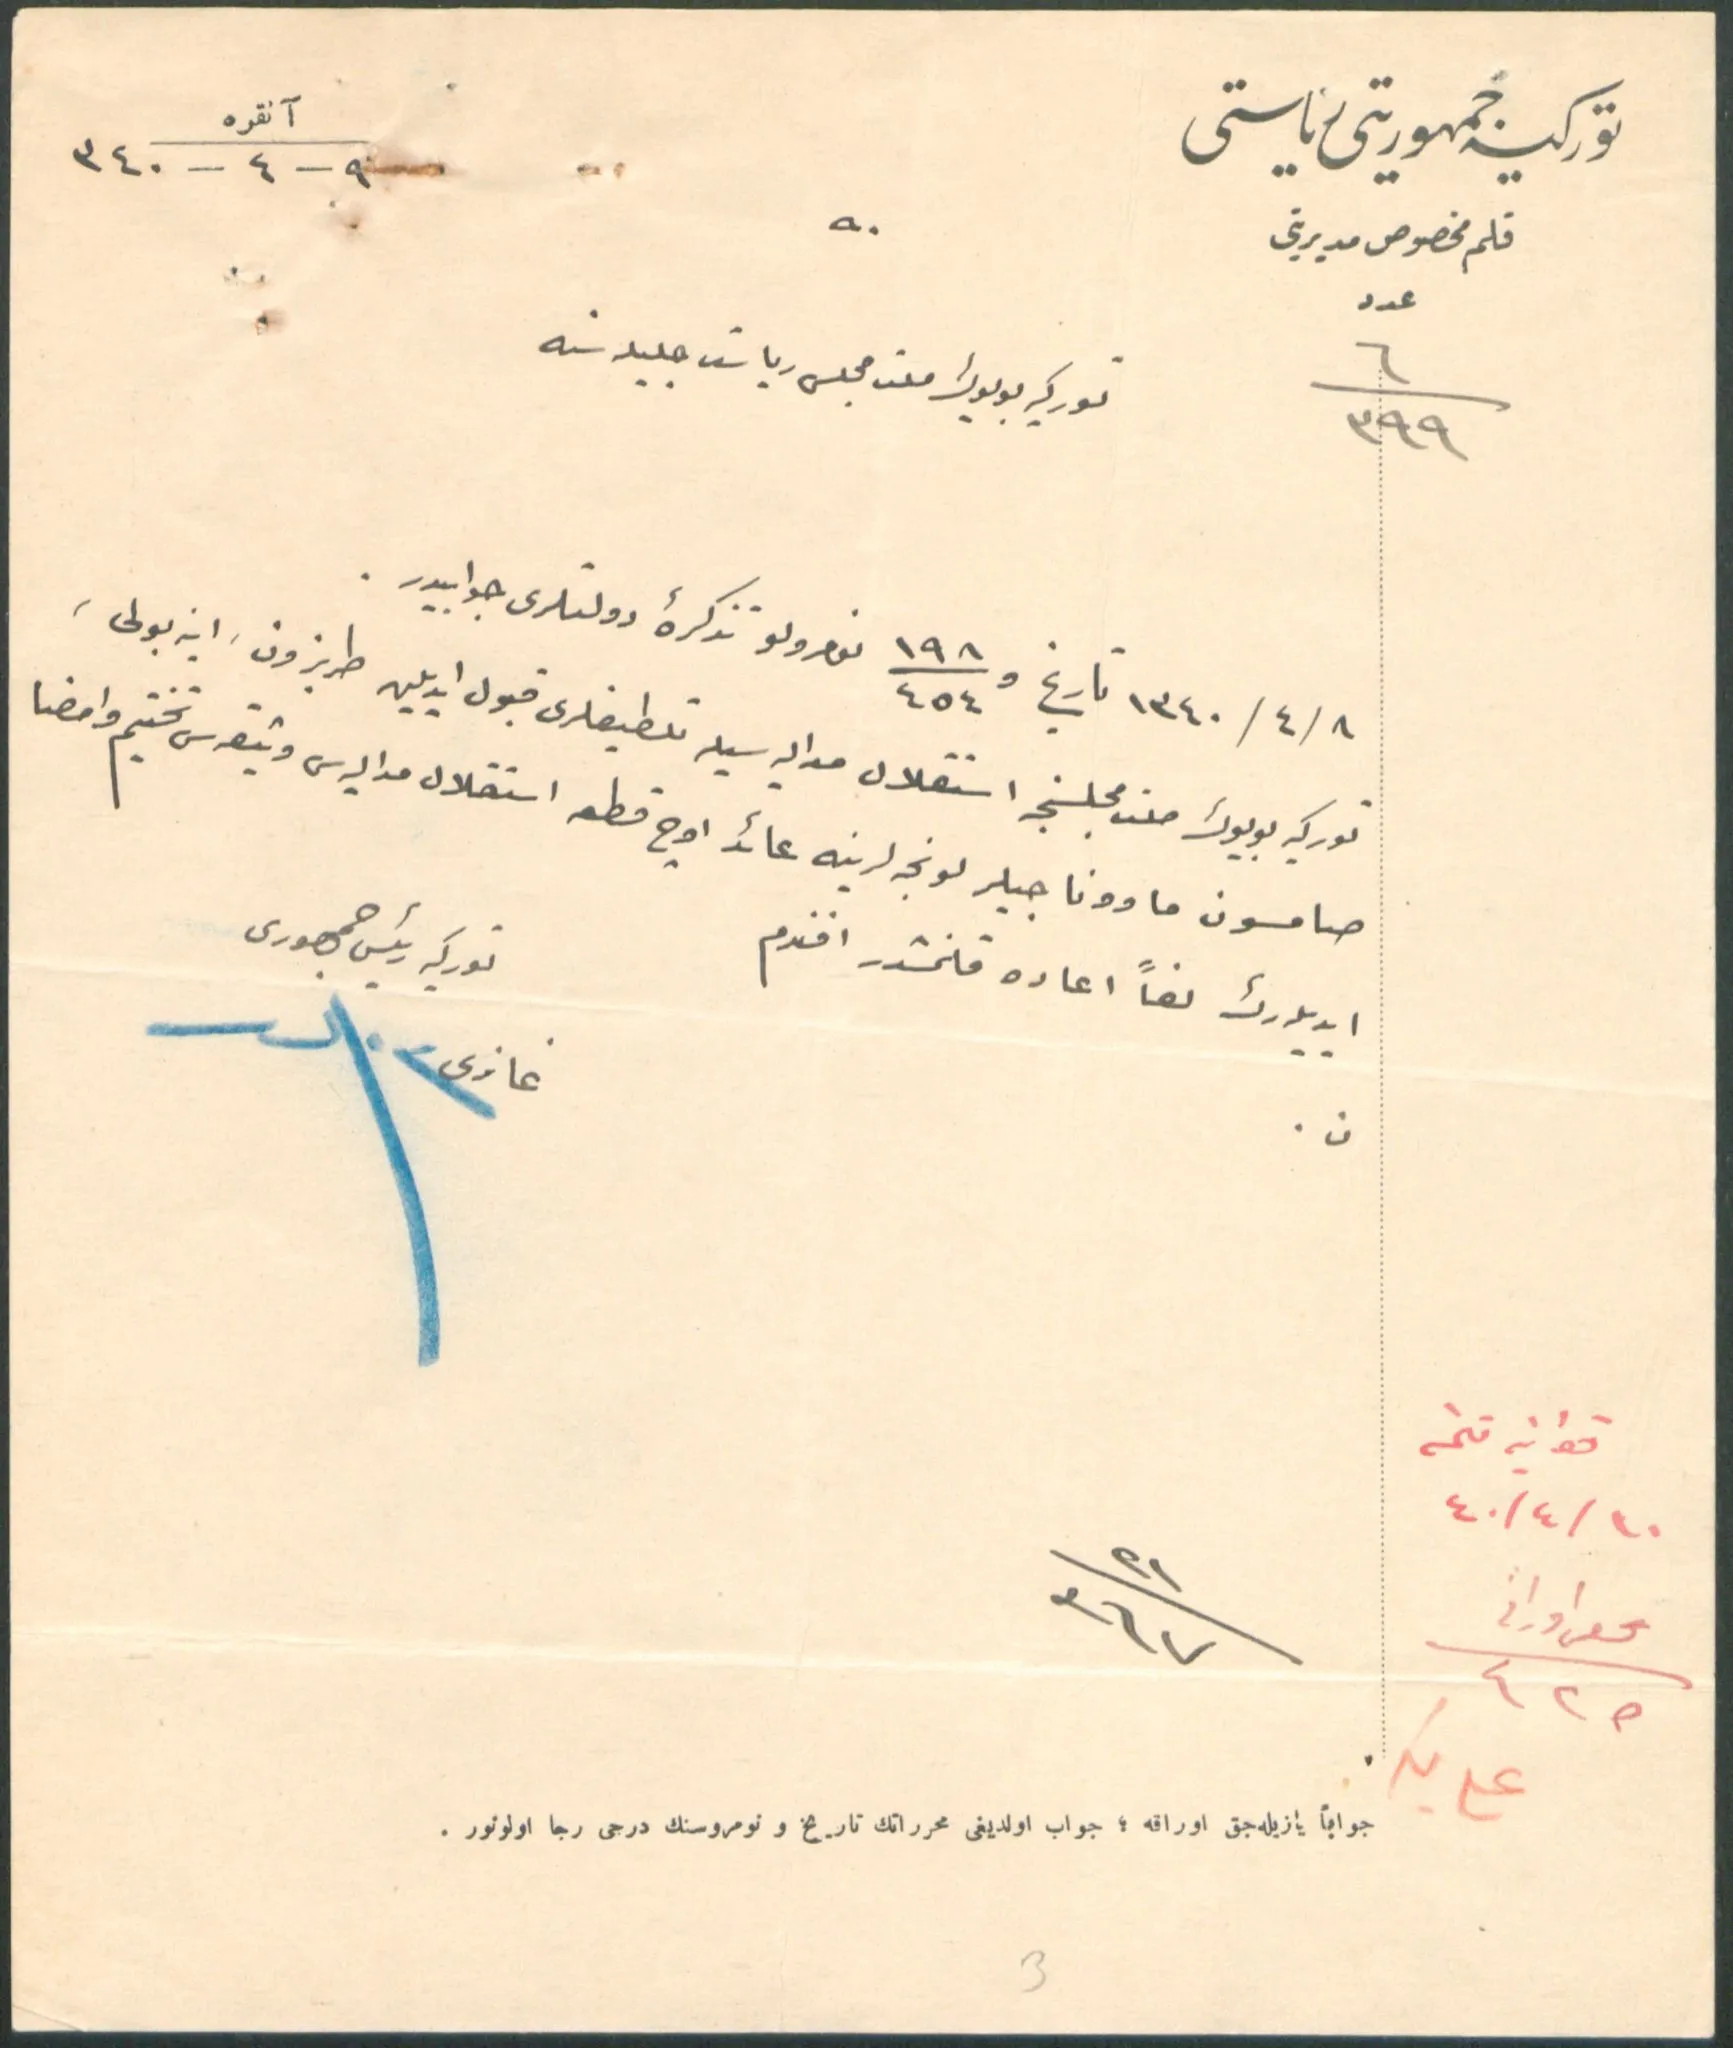 توركيه جمهوريتی رياستی
قلم مخصوص مديريتی
عدد
٦
٣٩٩
آنقره
٩ - ٤ - ٣٤٠
توركيه بويوك ملت مجلسی رياست جليله سنه
٨ / ٤ / ١٣٤٠ تاريخ و ١٩٨/٤٥٤ نومرولو تذكرۀ دولتلری جوابيدر .
توركيه بويوك ملت مجلسنجه استقلال مداليه سيله تلطيفلری قبول ايديلن طربزون ، اينه بولی ،
صامسون ماووناجيلر لونجه لرينه عائد اوچ قطعه استقلال مداليه سی وثيقه سی تختيم و امضا
ايديلرك لفاً اعاده قلنمشدر افندم
ن .
توركيه رئيس جمهوری
غازی م . كمال
قوانين قلمنه
١٠ / ٤ / ٤٠
اوراق
٤٢٥
علی بك
٢٦٧
جواباً يازيله جق اوراقه ؛ جواب اولديغی محرراتك تاريخ و نومروسنك درجی رجا اولونور .
3